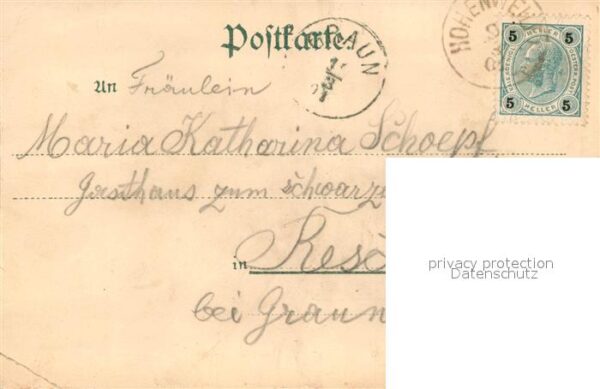 Postkarte.
GRAUN
HOHENWE
5 HELLER 5
5 HELLER 5
An Fräulein
Maria Katharina Schoepf
Gasthaus zum schwarze
privacy protection
Datenschutz
in Resc
bei Graun